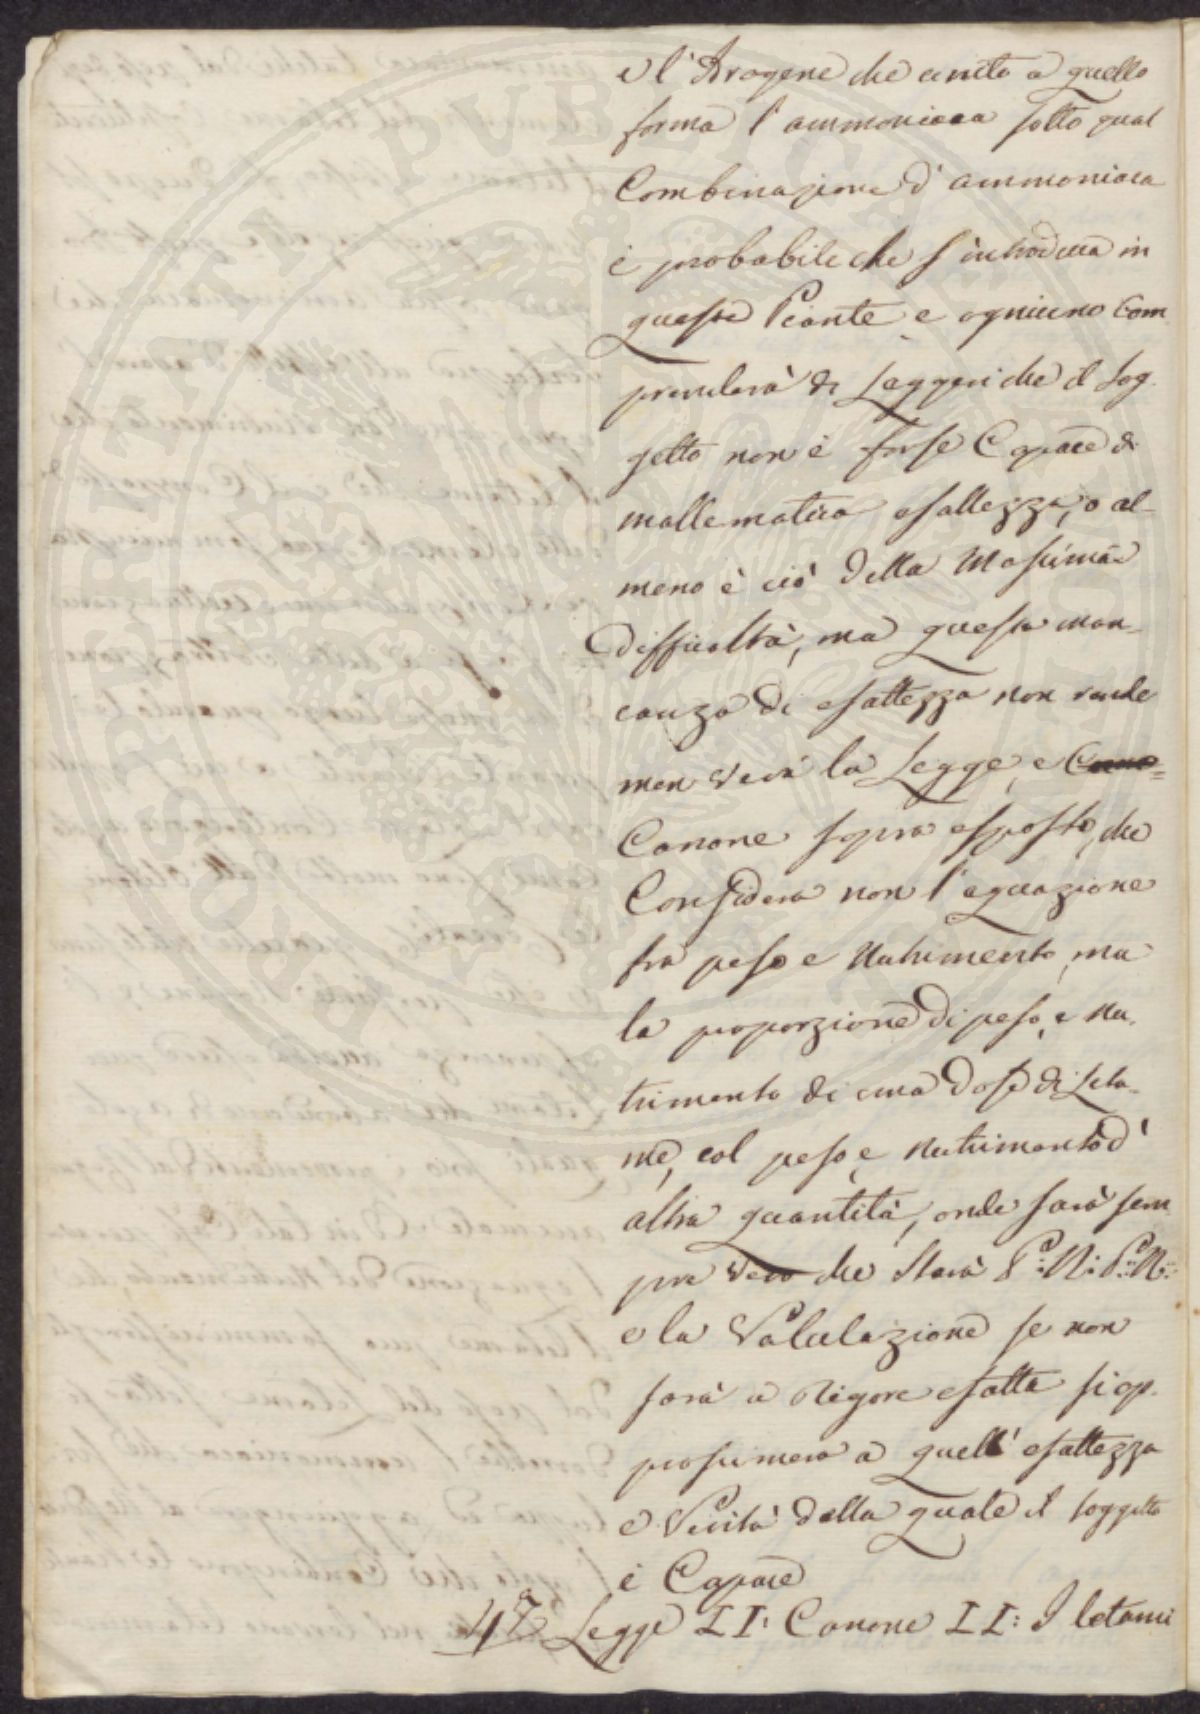 e l'Arogene che unito a quello
forma l'ammoniaca sotto qual
Combinazione d'ammoniaca
è probabile che s'introduca in
queste Piante e ogniuno Com
prenderà di Leggeri che il sog
getto non è forse Capace di
mattematica esattezza, o al-
meno è ciò della Massima
difficoltà, ma questa man-
canza di esattezza non rende
men vera la Legge, e
Canone sopra esposto, che
Considera non l'equazione
fra peso e Nutrimento, ma
la proporzione di peso, e Nu-
trimento di una Dose di Leta-
me, col peso, e Nutrimento d'
altra quantità, onde sarà sem
pre vero che Starà P:N:P:N:
e la Valutazione se non
sarà a Rigore esatta si ap-
prossimera a quell'esattezza
e Verità della quale il soggetto
è Capace
47 Legge II: Canone II: I letami
PROSPERITATI PUBLICAE